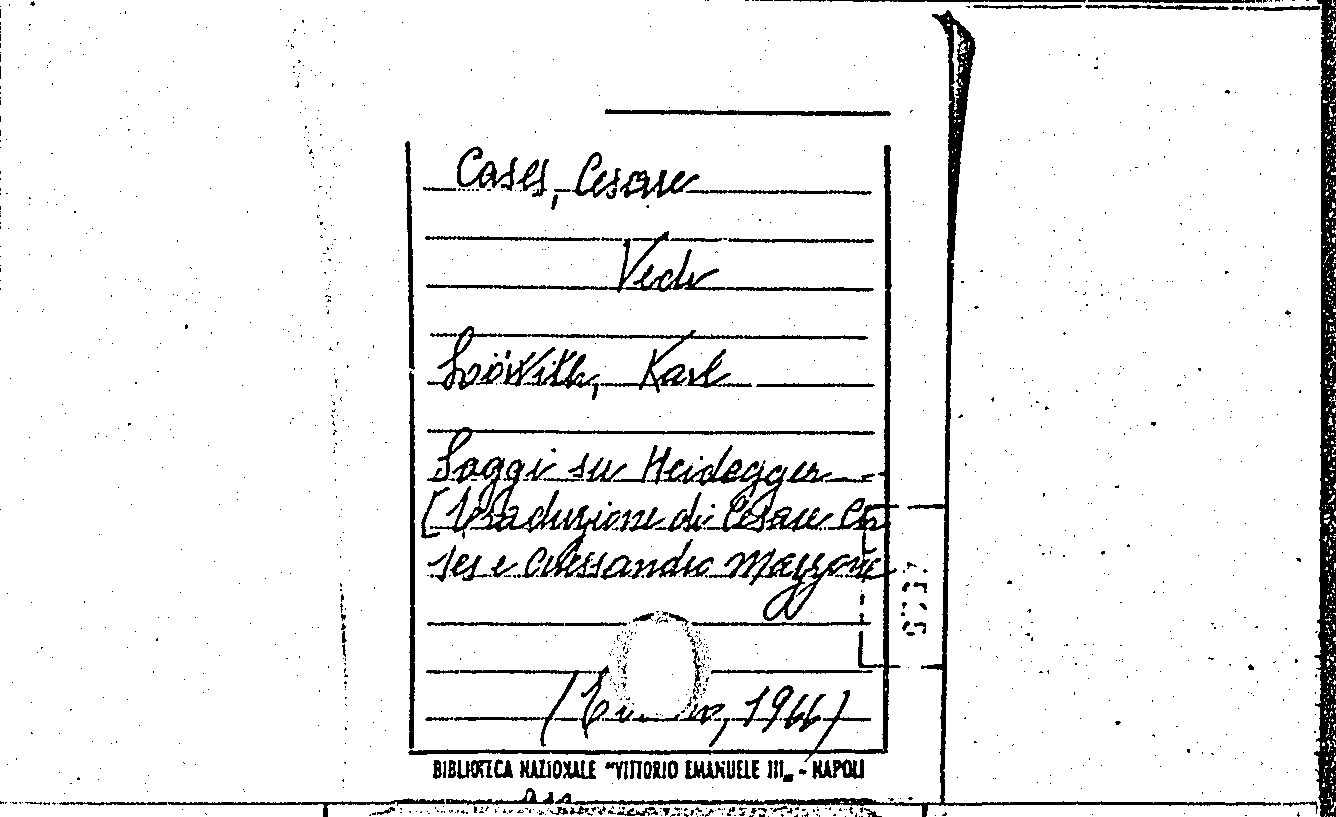 Cases, Cesare
Vedi
Loöwith, Karl
Saggi su Heidegger
[Traduzione di Cesare Ca
ses e Alessandro Mazzone
1966)
BIBLIOTECA NAZIONALE "VITTORIO EMANUELE III„ - NAPOLI